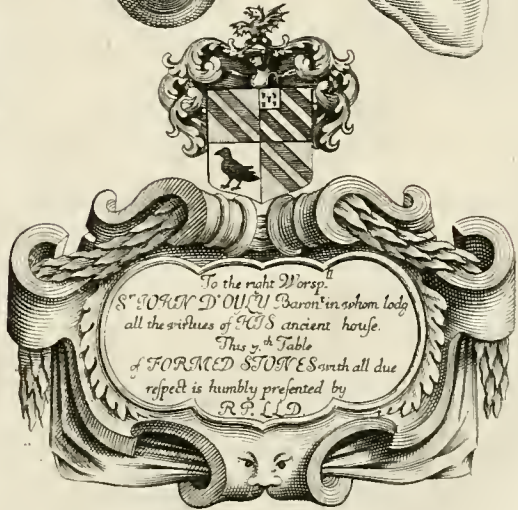 To the right Worsp.ll
Sr IOHN D'OYLY Baront in whom lodg
all the virtues of HIS ancient house.
This 7.th Table
of FORMED STONES with all due
respect is humbly presented by
R.P. LLD.